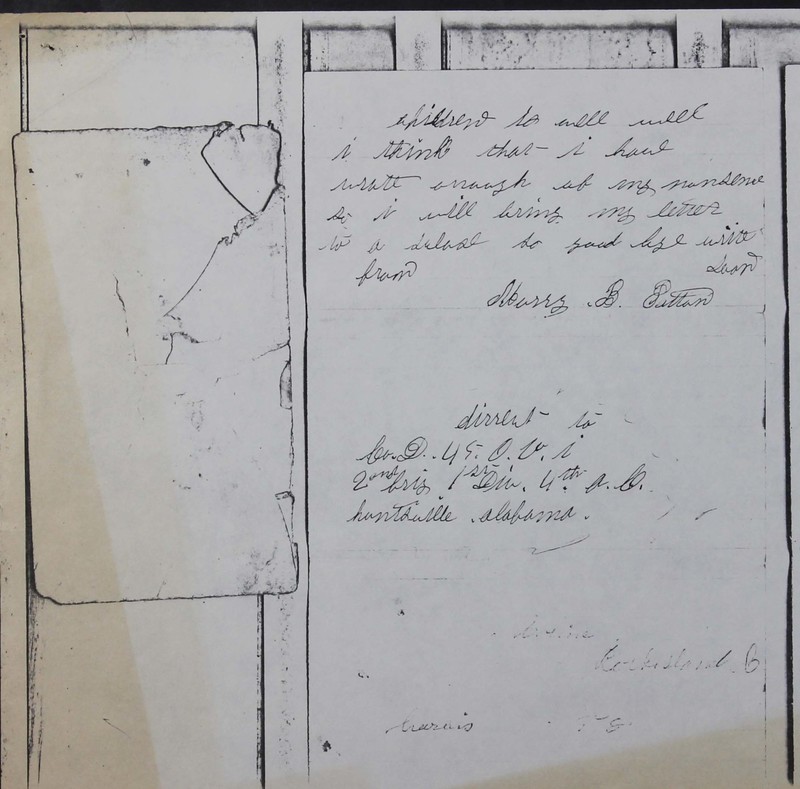 children to well well
i think that i have
wrote enough of my nonsense
so i will bring my letter
to a so good bye write
from soon
Harry B. Patton
dirrect to
Co. D. 45. O. V. i
2nd brig. 1st Div. 4th a. C.
huntsville alabama.